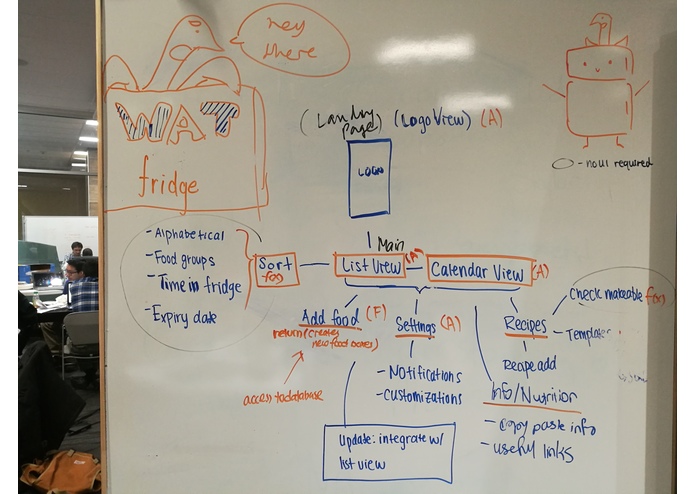 hey
there
WAT
fridge
(Landing
page) (Logo View) (A)
LOGIN
- no ui required
Main
- Alphabetical
- Food groups
- Time in fridge
- Expiry date
Sort
List View
(A)
Calendar View
(A)
Add food
(F)
return (creates
new food boxes)
access to database
Settings
(A)
- Notifications
- Customizations
Recipes
Check makeable
- Templates
Recipe add
Info/Nutrition
- copy paste info
- useful links
Update: integrate w/
list view